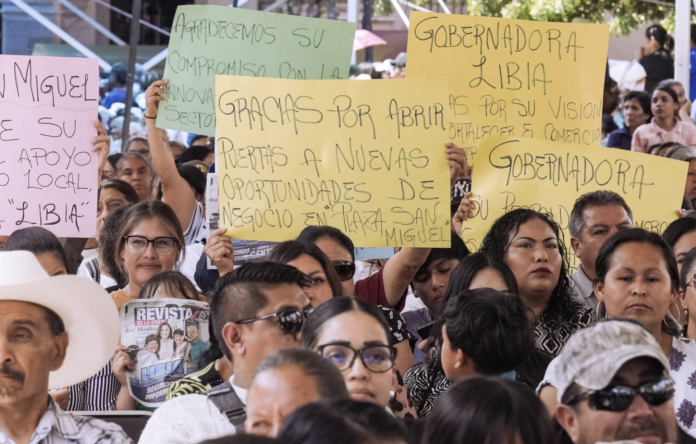 N MIGUEL
E SU
APOYO
O LOCAL
"LIBIA"
AGRADECEMOS SU
COMPROMISO CON LA
INNOVA
SECTO
GRACIAS POR ABRIR
PUERTAS A NUEVAS
OPORTUNIDADES DE
NEGOCIO EN "PLAZA SAN
MIGUEL
GOBERNADORA
LIBIA
AS POR SU VISIÓN
FORTALECER EL COMERCIO
GOBERNADORA
LIBIA
REVISTA